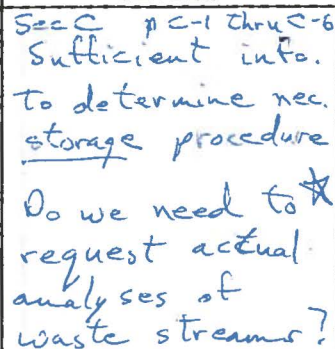 Sec C p C-1 thru C-6
Sufficient info.
to determine nec.
storage procedure
Do we need to *
request actual
analyses of
waste streams?